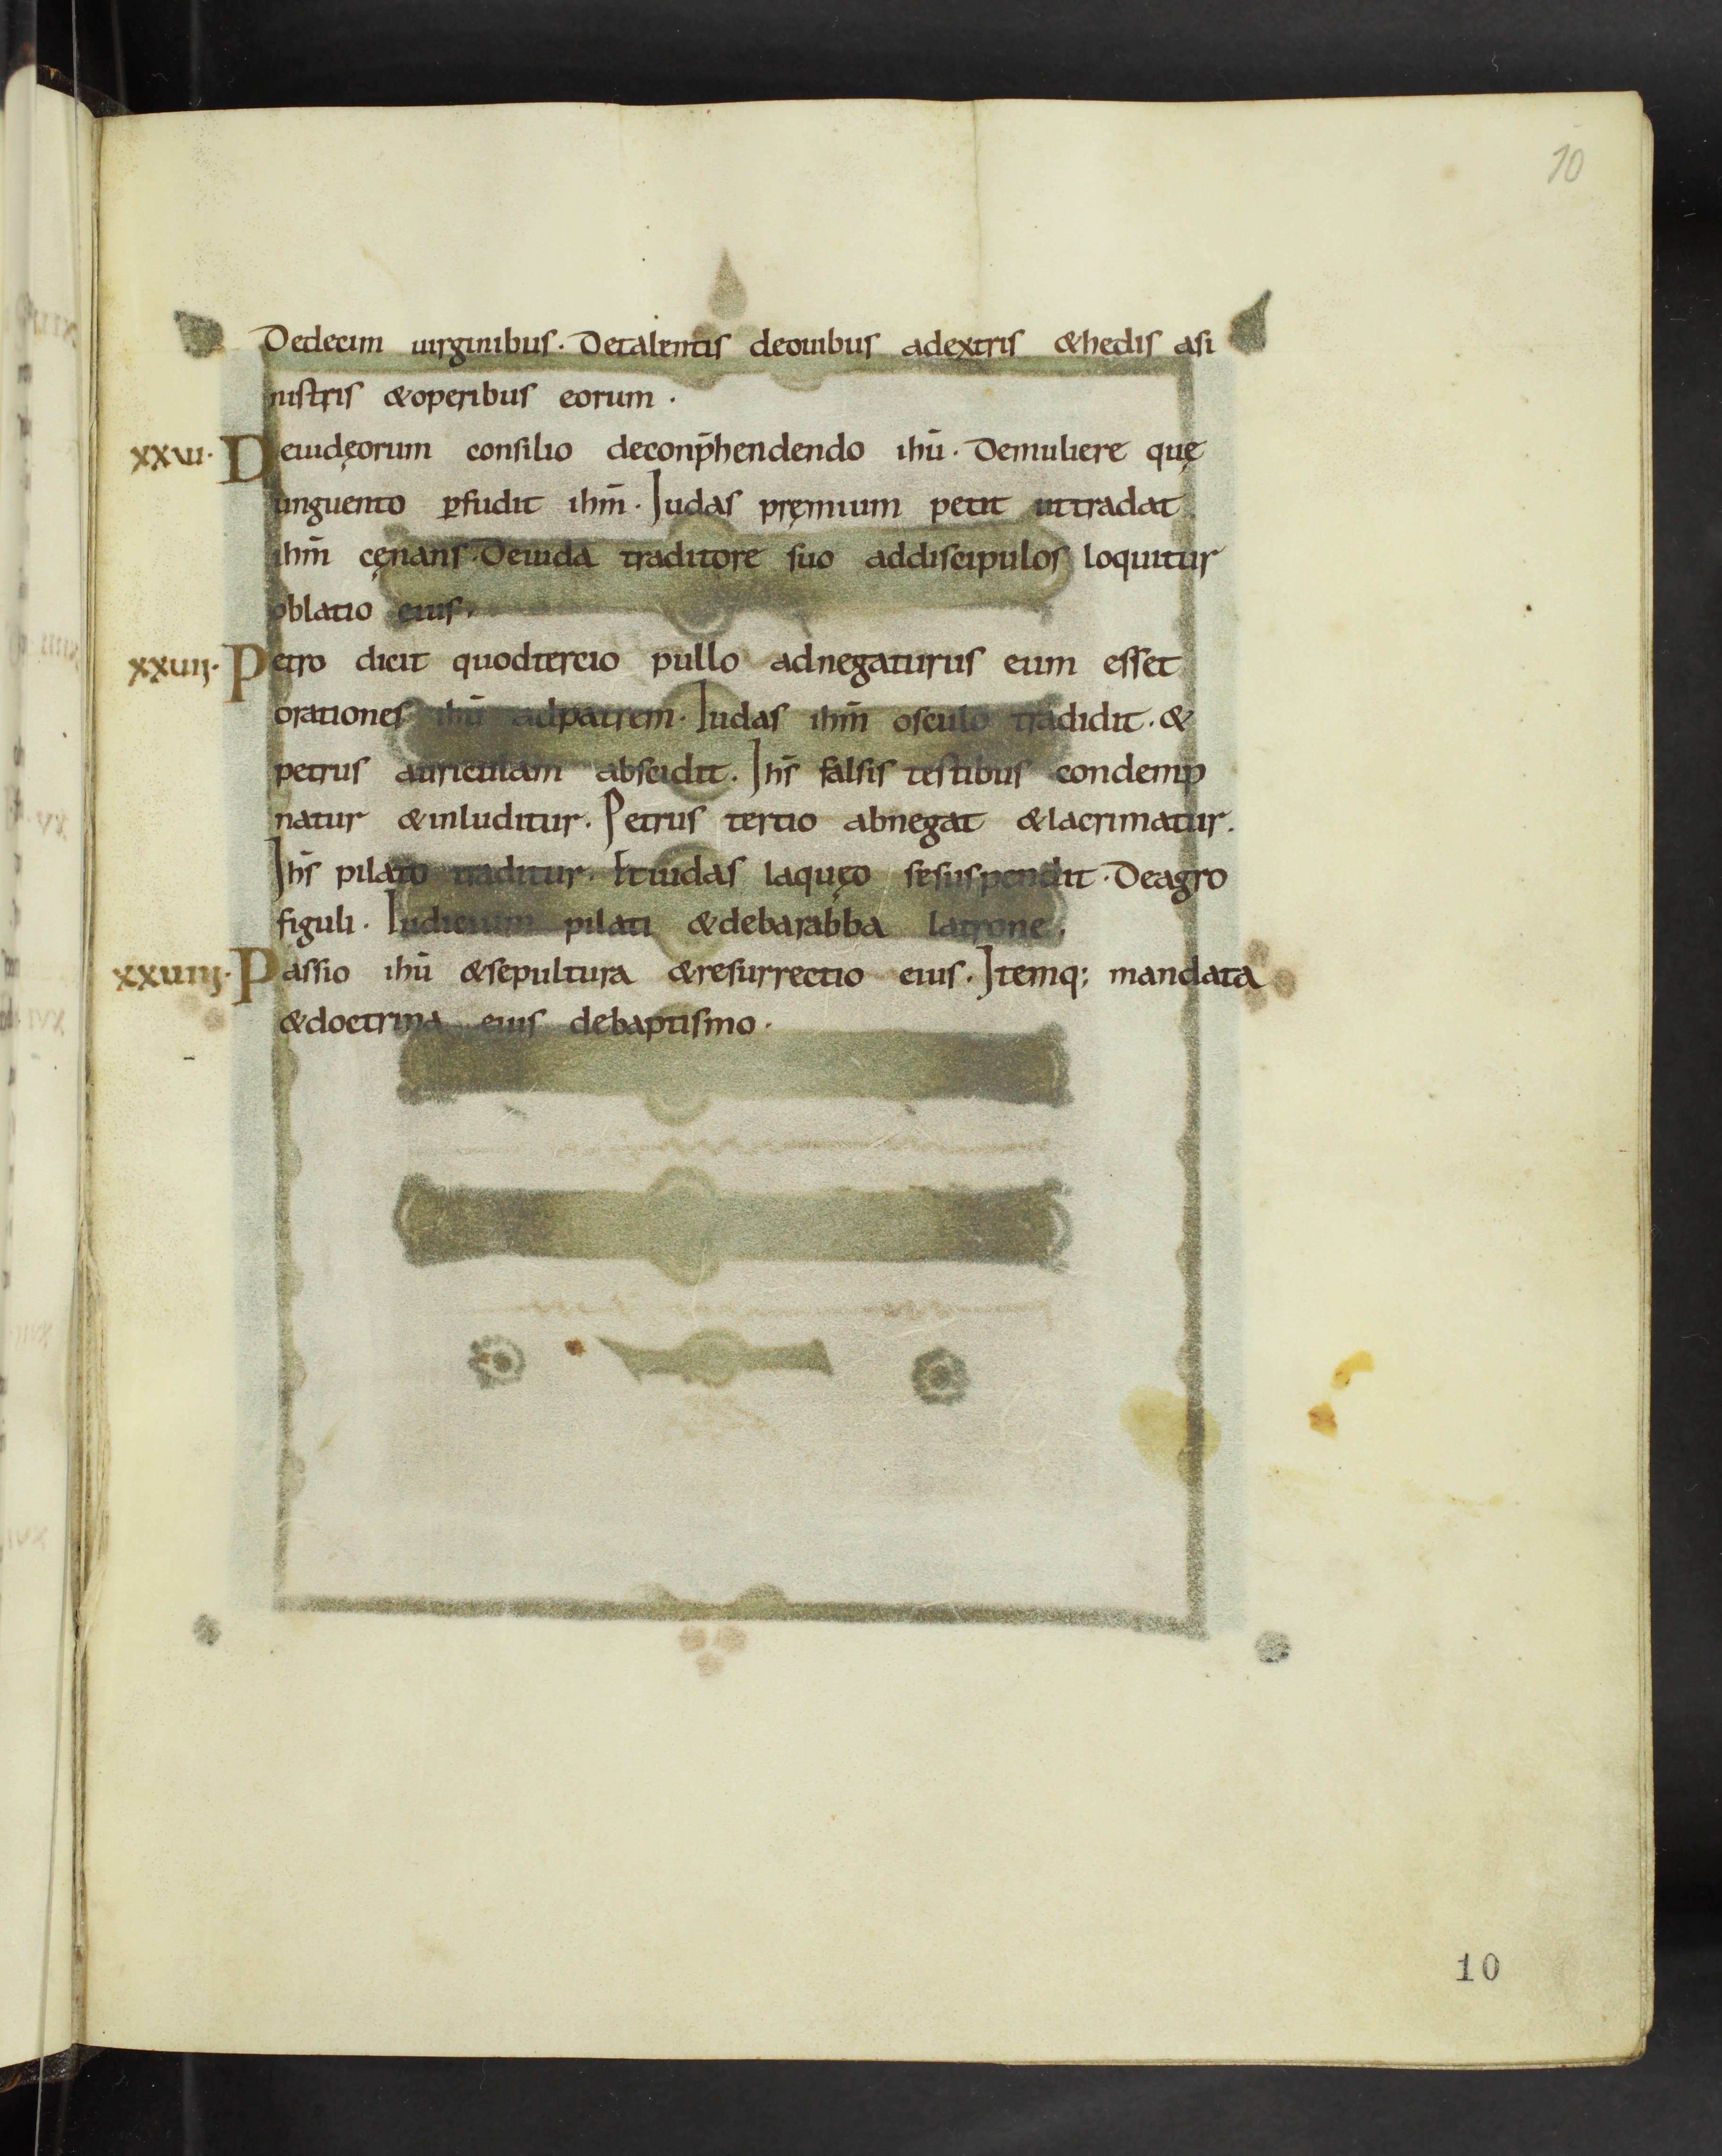 10
Dedecim uirginibus. Detalentis deouibus adextris &hedis asi
nistris &operibus eorum.
xxvi. Deiudęorum consilio deconp̄hendendo ihū. Demuliere quę
unguento ꝑfudit ihm̄. Iudas pręmium petit uttradat
ihm̄ cęnans. Deiuda traditore suo addiscipulos loquitur
oblatio eius.
xxvii. Petro dicit quodtercio pullo adnegaturus eum esset
orationes ihū adpatrem. Iudas ihm̄ osculo tradidit. &
petrus auriculam abscidit. Ihs̄ falsis testibus condemp
natur &inluditur. Petrus tertio abnegat &lacrimatur.
Ihs̄ pilato traditur. Etiudas laquęo sesuspendit. Deagro
figuli. Iudicium pilati &debarabba latrone.
xxviiii. Passio ihū &sepultura &resurrectio eius. Itemq; mandata
&doctrina eius debaptismo.
10